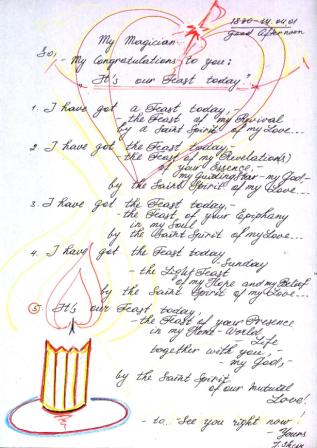 1830-14.04.01
Good Afternoon
My Magician
So, - My Congratulations to you:
"It's our Feast today".
1. I have got a Feast today,-
- the Feast of my Revival
by a Saint Spirit of my Love...
2. I have got the Feast today,-
- the Feast of my Revelation(s)
of your Essence -
my Guiding Star - my God -
by the Saint Spirit of my Love...
3. I have got the Feast today,-
- the Feast of your Epiphany
in my Soul
by the Saint Spirit of my Love...
4. I have got the Feast today
- Sunday
- the Light Feast
of my Hope and my Belief
by the Saint Spirit of my Love...
5. It's our Feast today,
- the Feast of your Presence
in my Home - World -
- Life
together with you, -
- my God,-
by the Saint Spirit
of our Mutual
Love!
- to.. See you right now!
- Yours